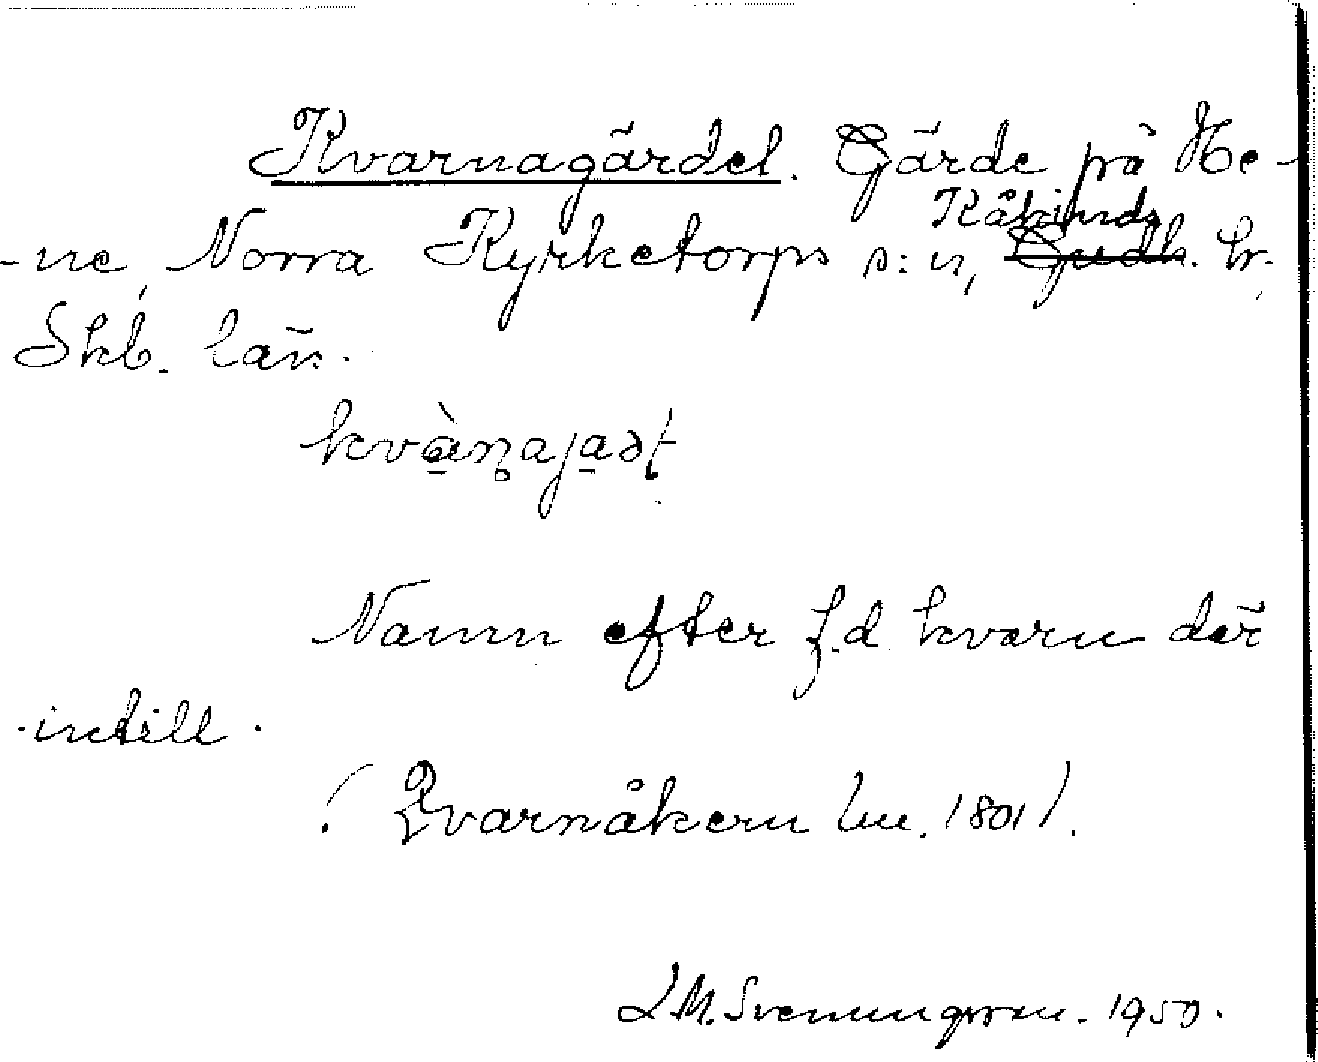 Kvarnagärdet. Gärde på He-
-ne, Norra Kyrketorps s:n, Kåkinds Gudh. hr.
Skb. län.
kvàn̥aja̲ət
Namn efter f.d. kvarn där
intill.
(Qvarnåkern lm. 1801).
L M. Svenungsson. 1950.